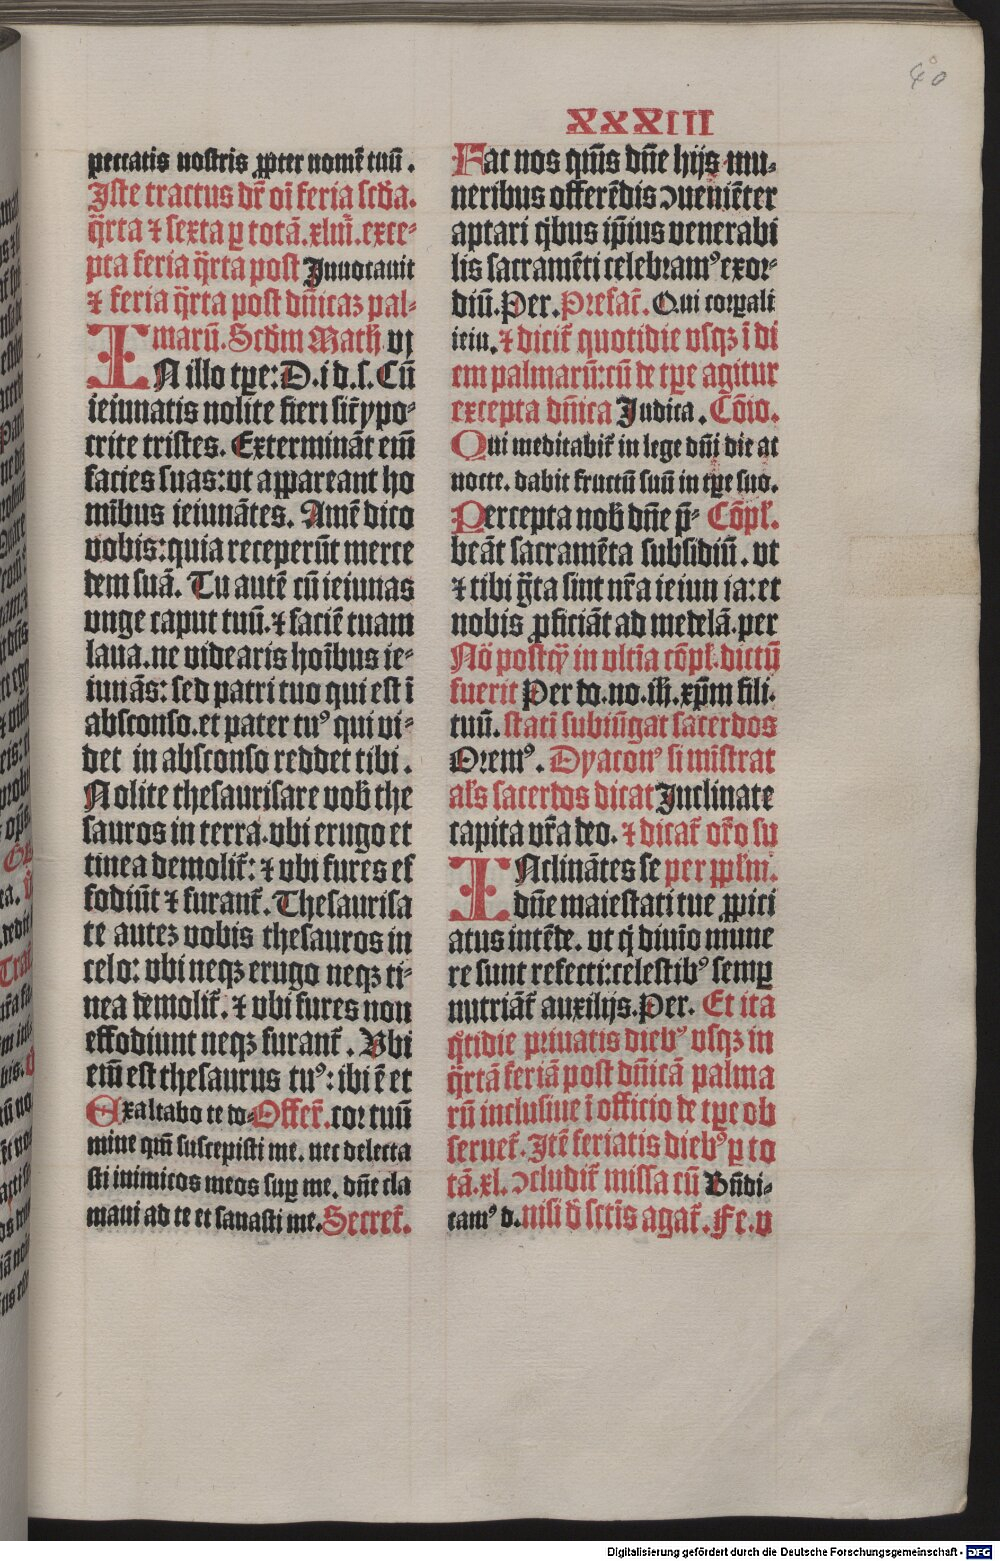 40
XXXIII
peccatis nostris ꝓpter nomē tuū .
Iste tractus dr̄ oī feria scd̄a.
q̄rta ⁊ sexta ꝑ totā .xlm̄. exce⸗
pta feria q̄rta post Inuocauit
⁊ feria q̄rta post dn̄icaꝫ pal⸗
marū. Scd̄m Math̄. vj
IN illo tꝑe: D. i d. s. Cū
ieiunatis nolite fieri sic̄ ypo⸗
crite tristes. Extermināt eī̄m
facies suas: vt appareant ho
mībus ieiunātes. Amē dico
vobis: quia receperūt merce
dem suā. Tu autē cū ieiunas
vnge caput tuū. ⁊ faciē tuam
laua. ne videaris hoībus ie⸗
iunās: sed patri tuo qui est ī
absconso. et pater tuꝰ qui vi⸗
det in absconso reddet tibi .
Nolite thesaurisare vob̄ the
sauros in terra. vbi erugo et
tinea demolit᷑: ⁊ vbi fures ef
fodiūt ⁊ furant᷑. Thesaurisa
te auteꝫ vobis thesauros in
celo: vbi neqꝫ erugo neqꝫ ti⸗
nea demolit᷑. ⁊ vbi fures non
effodiunt neqꝫ furant᷑ . Vbi
eī̄m est thesaurus tuꝰ: ibi ē et
Exaltabo te do⸗ Offer̄. cor tuū
mine qm̄ suscepisti me. nec delecta
sti inimicos meos suꝑ me. dn̄e cla
maui ad te et sanasti me. Secret᷑.
Fac nos qm̄s dn̄e hijs mu⸗
neribus offerēdis ↄueniēter
aptari q̇bus ip̄ius venerabi
lis sacramēti celebramꝰ exor⸗
diū. Per. Prefac̄. Qui corꝑali
ieiu. ⁊ dicit᷑ quotidie vsqꝫ ī di
em palmarū: cū de tꝑe agitur
excepta dn̄ica Iudica . Cōio.
Qui meditabit᷑ in lege dn̄i die ac
nocte. dabit fructū suū in tꝑe suo.
Percepta nob̄ dn̄e p̄⸗ Cōpl̄.
beāt sacramēta subsidiū . vt
⁊ tibi g̈ta sint nr̄a ieiunia: et
nobis ꝓficiāt ad medelā. per
Nō postq̄ȝ in vltīa cōpl̄. dictū
fuerit Per do. no. ih̄. xp̄m fili.
tuū. statī subiūgat sacerdos
Oremꝰ . Dyaconꝰ si mīstrat
al̄s sacerdos dicat Inclinate
capita vr̄a deo. ⁊ dicat᷑ or̄o su
INclinātes se per ppl̄m.
dn̄e maiestati tue ꝓpici
atus intēde. vt q̇ diuīo mune
re sunt refecti: celestibꝰ semꝑ
nutriāt᷑ auxilijs. Per. Et ita
q̊tidie priuatis diebꝰ vsqꝫ in
q̄rtā feriā post dn̄icā palma
rū inclusiue ī officio de tꝑe ob
seruet᷑. Itē feriatis diebꝰ ꝑ to
tā .xl. ↄcludit᷑ missa cū Bn̄di⸗
camꝰ d. nisi d̄ sctīs agat᷑. Fe. v
Digitalisierung gefördert durch die Deutsche Forschungsgemeinschaft - DFG